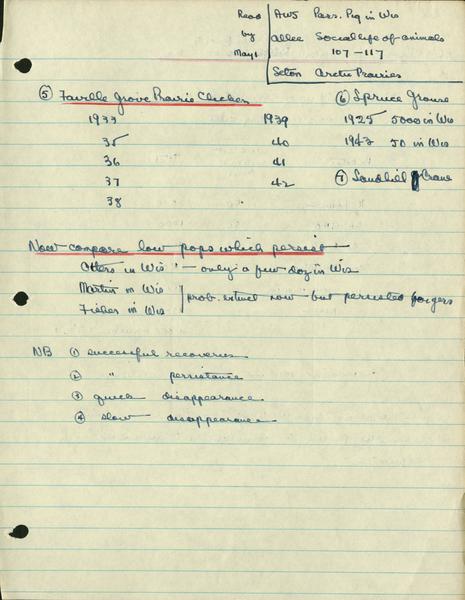 Read by May 1
AWS Pass. Pig in Wis
Allee Social life of animals
107-117
Seton Arctic Prairies
⑤ Faville Grove Prairie Chicken
1933 1939
35 40
36 41
37 42
38
⑥ Spruce Grouse
1925 5000 in Wis
1942 50 in Wis
⑦ Sandhill Crane
Now compare low pops which persist
Otters in Wis - only a few doz in Wis
Martin in Wis
Fisher in Wis
prob. extinct now but persisted for yrs
NB ① successful recoveries
② " persistance
③ quick disappearance
④ slow disappearance